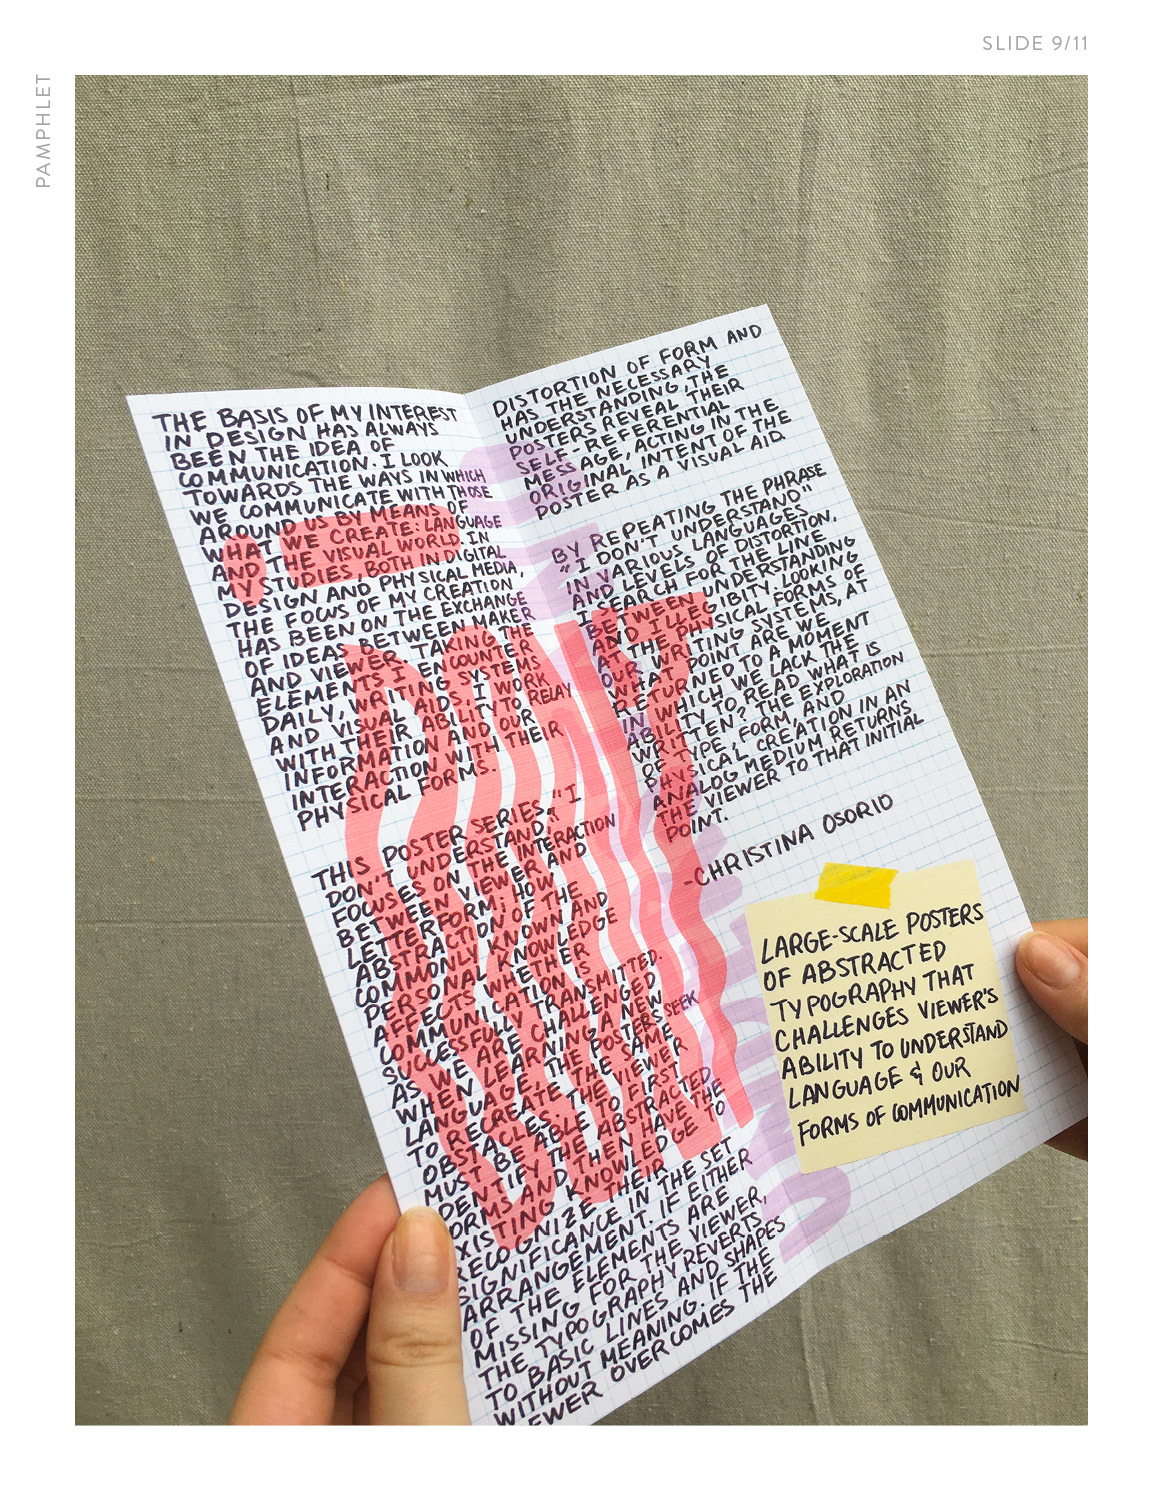 SLIDE 9/11
PAMPHLET
THE BASIS OF MY INTEREST
IN DESIGN HAS ALWAYS
BEEN THE IDEA OF
COMMUNICATION. I LOOK
TOWARDS THE WAYS IN WHICH
WE COMMUNICATE WITH THOSE
AROUND US BY MEANS OF
WHAT WE CREATE: LANGUAGE
AND THE VISUAL WORLD. IN
MY STUDIES, BOTH IN DIGITAL
DESIGN AND PHYSICAL MEDIA,
THE FOCUS OF MY CREATION
HAS BEEN ON THE EXCHANGE
OF IDEAS BETWEEN MAKER
AND VIEWER. TAKING THE
ELEMENTS I ENCOUNTER
DAILY, WRITING SYSTEMS
AND VISUAL AIDS, I WORK
WITH THEIR ABILITY TO RELAY
INFORMATION AND OUR
INTERACTION WITH THEIR
PHYSICAL FORMS.
THIS POSTER SERIES, "I
DON'T UNDERSTAND",
FOCUSES ON THE INTERACTION
BETWEEN VIEWER AND
LETTERFORM; HOW
ABSTRACTION OF THE
COMMONLY KNOWN AND
PERSONAL KNOWLEDGE
AFFECTS WHETHER
COMMUNICATION IS
SUCCESSFULLY TRANSMITTED.
AS WE ARE CHALLENGED
WHEN LEARNING A NEW
LANGUAGE, THE POSTERS SEEK
TO RECREATE THE SAME
OBSTACLES. THE VIEWER
MUST BE ABLE TO FIRST
IDENTIFY THE ABSTRACTED
FORMS AND THEN HAVE THE
EXISTING KNOWLEDGE TO
RECOGNIZE THEIR
SIGNIFICANCE IN THE SET
ARRANGEMENT. IF EITHER
OF THE ELEMENTS ARE
MISSING FOR THE VIEWER,
THE TYPOGRAPHY REVERTS
TO BASIC LINES AND SHAPES
WITHOUT MEANING. IF THE
EWER OVERCOMES THE
DISTORTION OF FORM AND
HAS THE NECESSARY
UNDERSTANDING, THE
POSTERS REVEAL THEIR
SELF-REFERENTIAL
MESSAGE, ACTING IN THE
ORIGINAL INTENT OF THE
POSTER AS A VISUAL AID.
BY REPEATING THE PHRASE
"I DON'T UNDERSTAND"
IN VARIOUS LANGUAGES
AND LEVELS OF DISTORTION,
I SEARCH FOR THE LINE
BETWEEN UNDERSTANDING
AND ILLEGIBITY. LOOKING
AT THE PHYSICAL FORMS OF
OUR WRITING SYSTEMS, AT
WHAT POINT ARE WE
RETURNED TO A MOMENT
IN WHICH WE LACK THE
ABILITY TO READ WHAT IS
WRITTEN? THE EXPLORATION
OF TYPE, FORM, AND
PHYSICAL CREATION IN AN
ANALOG MEDIUM RETURNS
THE VIEWER TO THAT INITIAL
POINT.
-CHRISTINA OSORIO
LARGE-SCALE POSTERS
OF ABSTRACTED
TYPOGRAPHY THAT
CHALLENGES VIEWER'S
ABILITY TO UNDERSTAND
LANGUAGE & OUR
FORMS OF COMMUNICATION